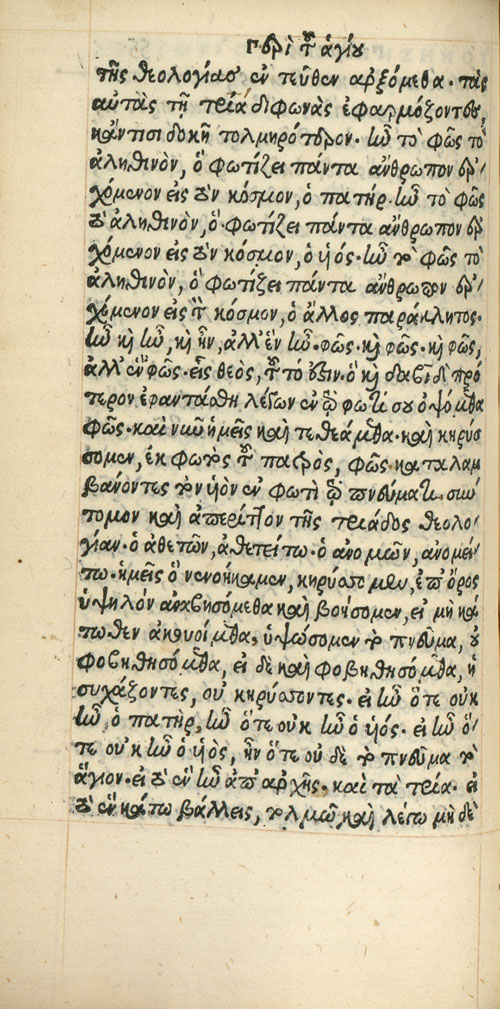 περὶ τοῦ ἁγίου
τῆς θεολογίασ ἐν τεῦθεν ἀρξόμεθα. τὰς
αὐτὰς τῇ τριάδι φωνὰς ἐφαρμόζοντες,
κἄν τισι δοκῇ τολμηρότερον. ἦν τὸ φῶς τὸ
ἀληθινὸν, ὃ φωτίζει πάντα ἄνθρωπον ἐρ
χόμενον εἰς τὸν κόσμον, ὁ πατήρ. ἦν τὸ φῶς
τὸ ἀληθινὸν, ὃ φωτίζει πάντα ἄνθρωπον ἐρ
χόμενον εἰς τὸν κόσμον, ὁ ὑιός. ἦν τὸ φῶς τὸ
ἀληθινὸν, ὃ φωτίζει πάντα ἄνθρωπον ἐρ
χόμενον εἰς τὸν κόσμον, ὁ ἄλλος παράκλητος.
ἦν καὶ ἦν, καὶ ἦν, ἀλλ' ἓν ἦν. φῶς. καὶ φῶς. καὶ φῶς,
ἀλλ' ἓν φῶς. εἷς θεὸς, τοῦτό ἐστιν. ὃ καὶ δαβὶδ πρό
τερον ἐφαντάσθη λέγων ἐν τῷ φωτί σου ὀψόμεθα
φῶς. καὶ νῦν ἡμεῖς καὶ τεθεάμεθα. καὶ κηρύσ
σομεν, ἐκ φωτὸς τοῦ πατρὸς, φῶς καταλαμ
βάνοντες τὸν ὑιὸν ἐν φωτὶ τῷ πνεύματι. σύν
τομον καὶ ἀπέριττον τῆς τριάδος θεολο
γίαν. ὁ ἀθετῶν, ἀθετείτω. ὁ ἀνομιῶν, ἀνομεί
τω. ἡμεῖς ὃ νενοήκαμεν, κηρύσσομεν, ἐπ' ὄρος
ὑψηλὸν ἀναβησόμεθα καὶ βοήσομεν, εἰ μὴ κά
τωθεν ἀκουοίμεθα, ὑψώσομεν τὸ πνεῦμα, οὐ
φοβηθησόμεθα, εἰ δὲ καὶ φοβηθησόμεθα, ἡ
συχάζοντες, οὐ κηρύσσοντες. εἰ ἦν ὅτε οὐκ
ἦν, ὁ πατὴρ, ἦν ὅτε οὐκ ἦν ὁ ὑιός. εἰ ἦν ὅ
τε οὐκ ἦν ὁ ὑιὸς, ἦν ὅτε οὐ δὲ τὸ πνεῦμα τὸ
ἅγιον. εἰ τὸ ἓν ἦν ἀπ' ἀρχῆς. καὶ τὰ τρία. εἰ
τὸ ἓν κάτω βάλλεις, τολμῶ καὶ λέγω μὴ δὲ